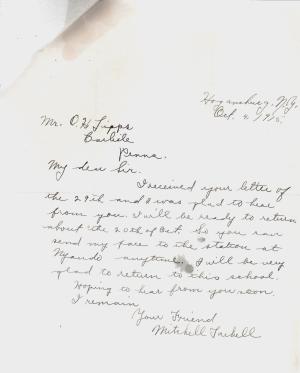 Hogansburg, N.Y.
Oct. 2, 1915.
Mr. O H Lipps
Carlisle
Penna.
My dear Sir.
I received your letter of
the 29th and I was glad to hear
from you. I will be ready to return
about the 20th of Oct. So you can
send my fare to the station at
Nyando anytime. I will be very
glad to return to this school.
Hoping to hear from you soon.
I remain
Your Friend
Mitchell Tarbell